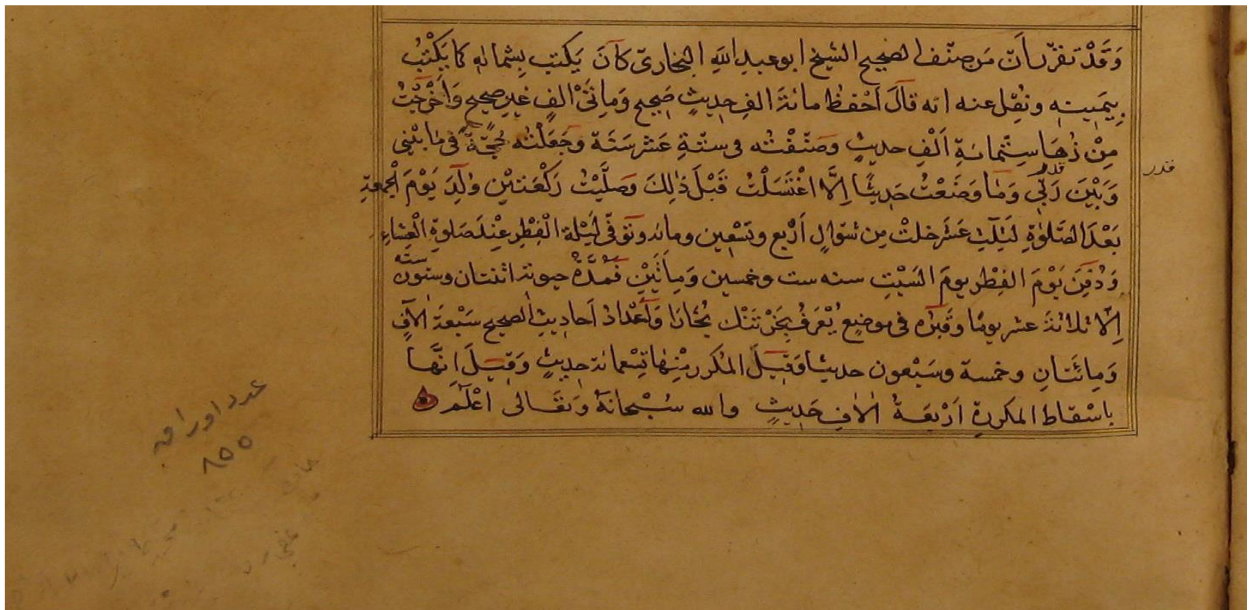 وَقَدْ تقرّر اَنّ مَن صنّف الصحيح الشيخ ابو عبدِ اللهِ البخاریّ كاَنَ يَكتب بِشماله كما يَكْتبُ
بِيَمينه ونُقِل عنه انه قاَلَ اَحْفظُ مائةَ الفِ حديثٍ صَحِيحٍ وَمِائَتَیْ اَلفٍ غيرِ صحيحٍ وَاَخْرَجْتُ
مِنْ زُهَا سِتّمائةِ اَلْفِ حديثٍ وصَنّفْتُه فى ستّةِ عَشَر سَنَة وَجَعَلْتُه حُجّةً فى مابَيْنِى
وَبَيْنَ رَبّى وَمَا وَضَعْتُ حَدِيثًا اِلَّا اغْتَسَلْتُ قَبْلَ ذٰلِكَ وَصَلَّيْتُ رَكْعَتيْنِ وَوُلِدَ يَوْمَ الْجُمعَةِ
قدر
بَعْدَ الصَّلٰوةِ لِثَلٰثِ عَشَر خلتْ مِن شوّالٍ اَرْبع وتسْعِين ومائه وتوَفّى لَيْلة الْفِطْرِ عِنْدَ صَلوةِ الْعِشاءِ
وَدُفِنَ يَوْمَ الفِطْرِ يومَ السَّبْتِ سنه ست وخمسين وَمِائَتَيْنِ فَمُدَّةُ حيوته اثنتان وستّونَ سَنَه
اِلّا ثلاثةَ عشر يومًا وقَبْرُه فى موضعٍ يُعْرَفُ بِخَرْتَنْك بُخَارَا وَاَعْدَادُ اَحاديثِ الصحيح سَبْعةُ اٰلآفٍ
وَمِائَتَانِ وخمسة وسَبْعون حديثا وَقيْلَ المُكرر مِنْها تِسْعمائة حديثٍ وَقيْلَ اِنَّها
باسْقاط المكررةِ اَرْبَعَةُ اٰلافِ حَديثٍ والله سُبْحانَهٗ وَتَعَالى اَعْلَم
عدد اوراقه
٨٥٥